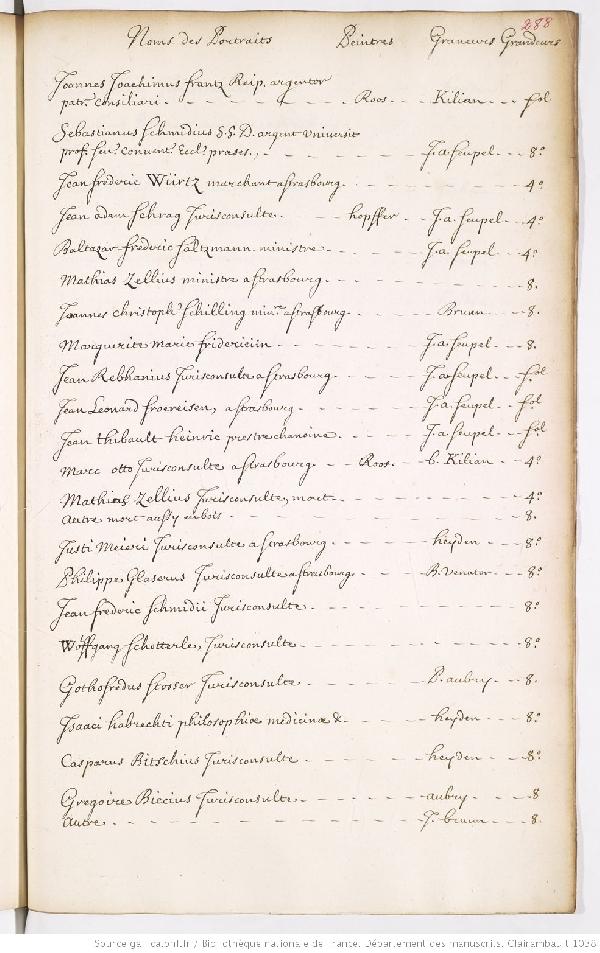 288
Noms des Portraits Peintres Graveurs Grandeurs
Joannes Joachimus frantz Reip. argentor
patr. Consiliari. Roos. Kilian. fol
Sebastianus Schmidius S.S.D. argent universit
prof. sen. Convent. Eccl. præses. J. a. seupel. 8.°
Jean frederic Würtz marchant a strasbourg. 4.°
Jean adam Schrag Jurisconsulte. hopffer J. a. seupel. 4.°
Baltazar frederic saltzmann ministre J. a. seupel. 4.°
Mathias Zellius ministre a strasbourg. 8.
Joannes Christoph. Schilling min.re a strasbourg. Brunn 8.
Marguerite marie fridericiin J. a. seupel. 8.
Jean Rebhanius Jurisconsulte a strasbourg. J. a. seupel. fol
Jean Leonard froereisen, a strasbourg. J. a. seupel. fol
Jean thibault heinric prestre chanoine. J. a. seupel. fol
Marc otto Jurisconsulte a strasbourg. Roos. b. Kilian. 4.°
Mathias Zellius Jurisconsulte, mort. 4.°
Autre mort aussy en bois 8.
Justi Meieri Jurisconsulte a strasbourg. heyden 8.°
Philippe Glaserus Jurisconsulte a strasbourg. B. venator 8.°
Jean frederic Schmidii Jurisconsulte. 8.°
Wolffgang Schotterle, Jurisconsulte 8.°
Gothofredus stosser Jurisconsulte P. aubry. 8.
Isaaci habrechti philosophiæ medicinæ &. heyden 8.°
Casparus Bitschius Jurisconsulte heyden 8.°
Gregoire Biccius Jurisconsulte. aubry. 8
Autre. J. brunn 8.
Source gallica.bnf.fr / Bibliothèque nationale de France. Département des manuscrits. Clairambault 1038